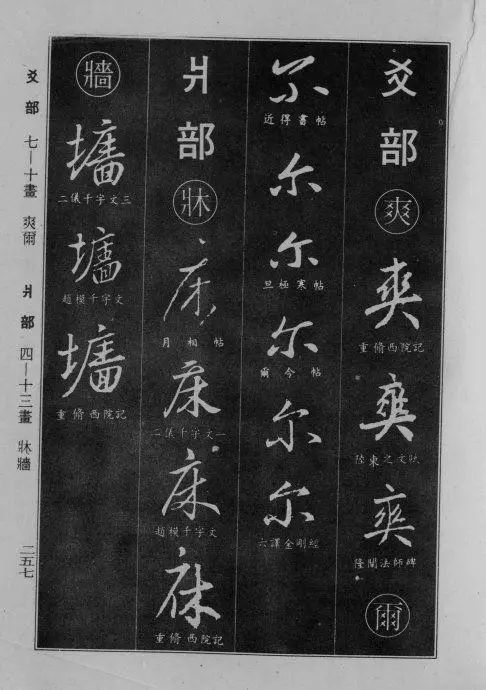 爻部
爽
爽
重脩西院記
爽
陸東之文賦
爽
隆闡法師碑
爾
尔
近得書帖
尔
尔
旦極寒帖
尔
爾今帖
尔
尔
六譯金剛經
爿部
牀
床
月相帖
床
二儀千字文一
床
趙模千字文
床
重脩西院記
牆
墻
二儀千字文三
墻
趙模千字文
墻
重脩西院記
爻部 七—十畫 爽爾 爿部 四—十三畫 牀牆 二五七